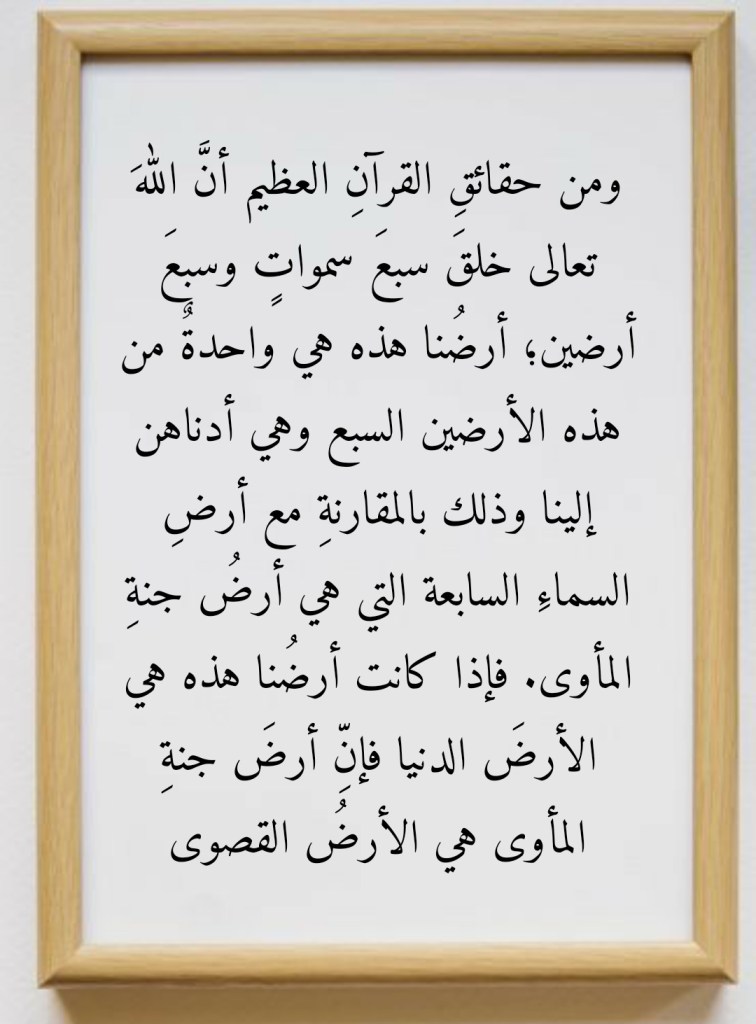 ومن حقائقِ القرآنِ العظيم أنَّ اللهَ
تعالى خلقَ سبعَ سمواتٍ وسبعَ
أرضين؛ أرضُنا هذه هي واحدةٌ من
هذه الأرضين السبع وهي أدناهن
إلينا وذلك بالمقارنةِ مع أرضِ
السماءِ السابعة التي هي أرضُ جنةِ
المأوى. فإذا كانت أرضُنا هذه هي
الأرضَ الدنيا فإنِّ أرضَ جنةِ
المأوى هي الأرضُ القصوى